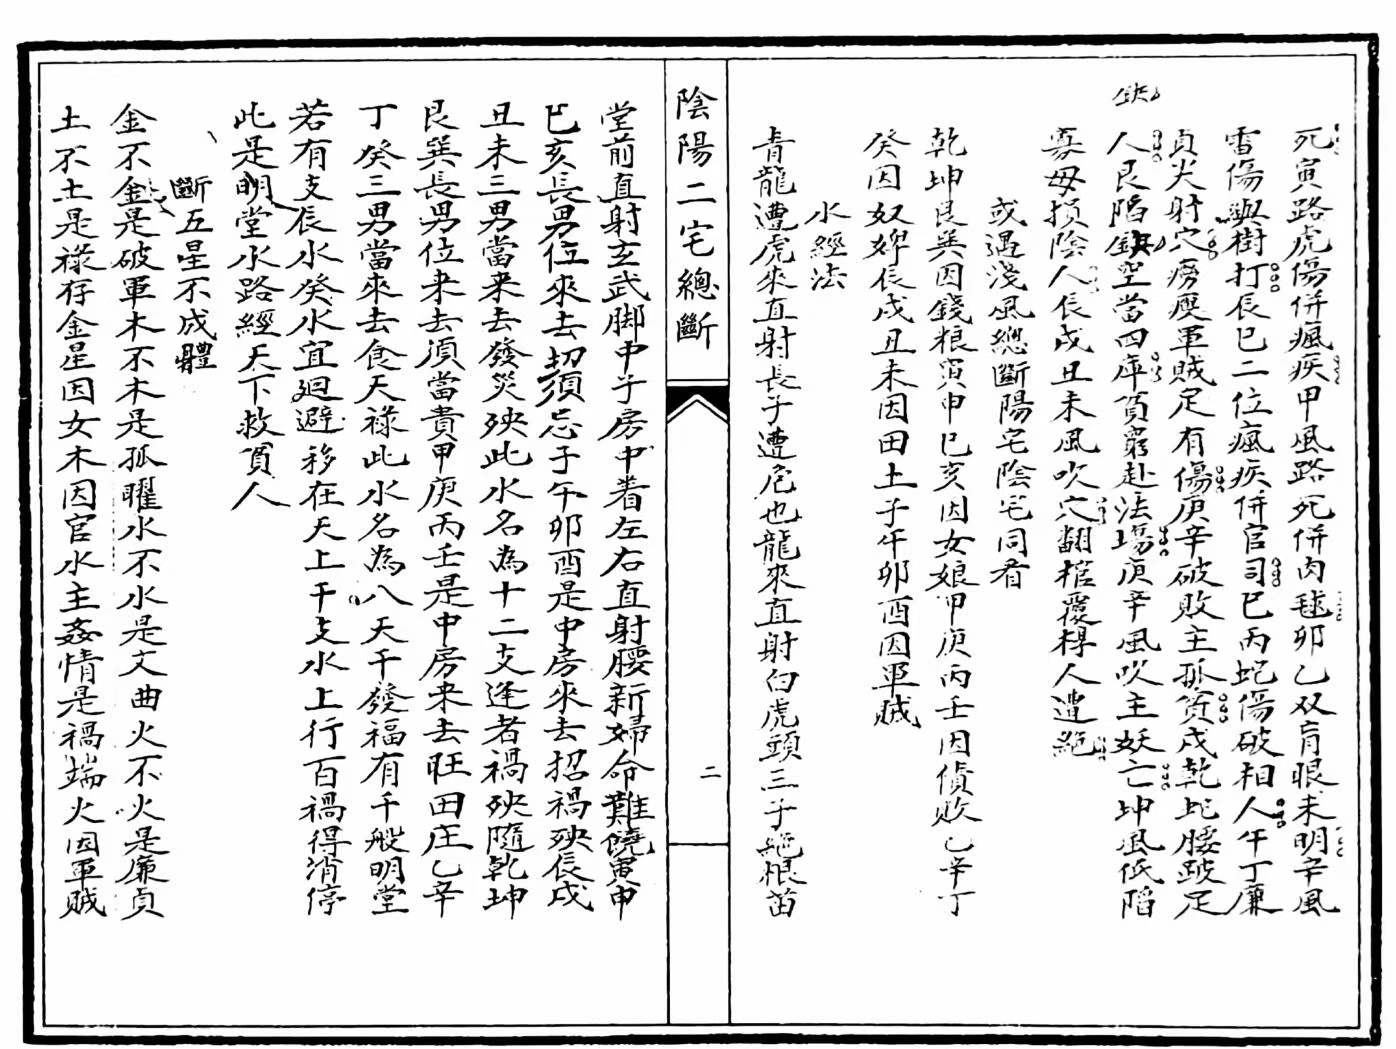 死寅路虎傷併瘋疾甲風路死併肉毬卯乙双盲眼未明辛風
雷傷與樹打辰巳二位瘋疾併官司巳丙蛇傷破相人午丁廉
貞尖射穴癆瘦軍賊足有傷庚辛破敗主孤貧戌乾坨腰跛足
缺
人艮陷缺空當四庫貧窮赴法場庚辛風吹主妖亡坤風低陷
寡母損陰人辰戌丑未風吹穴翻棺覆槨人遭絕
或遇淺風總斷陽宅陰宅同看
乾坤艮巽因錢粮寅申巳亥因女娘甲庚丙壬因債敗乙辛丁
癸因奴婢辰戌丑未因田土子午卯酉因軍賊
水經法
青龍遭虎來直射長子遭危也龍來直射白虎頭三子絕根苗
陰陽二宅總斷
二
堂前直射玄武脚中子房中看左右直射腰新婦命難饒寅申
巳亥長男位來去切須忘子午卯酉是中房來去招禍殃辰戌
丑未三男當來去發災殃此水名為十二支逢者禍殃隨乾坤
艮巽長男位来去須當貴甲庚丙壬是中房来去旺田庄乙辛
丁癸三男當來去食天祿此水名為八天干發福有千般明堂
若有支辰水癸水宜廻避移在天上干支水上行百禍得消停
此是明堂水路經天下救貧人
斷五星不成體
金不金是破軍木不木是孤曜水不水是文曲火不火是廉貞
土不土是祿存金星因女木因官水主姦情是禍端火因軍賊